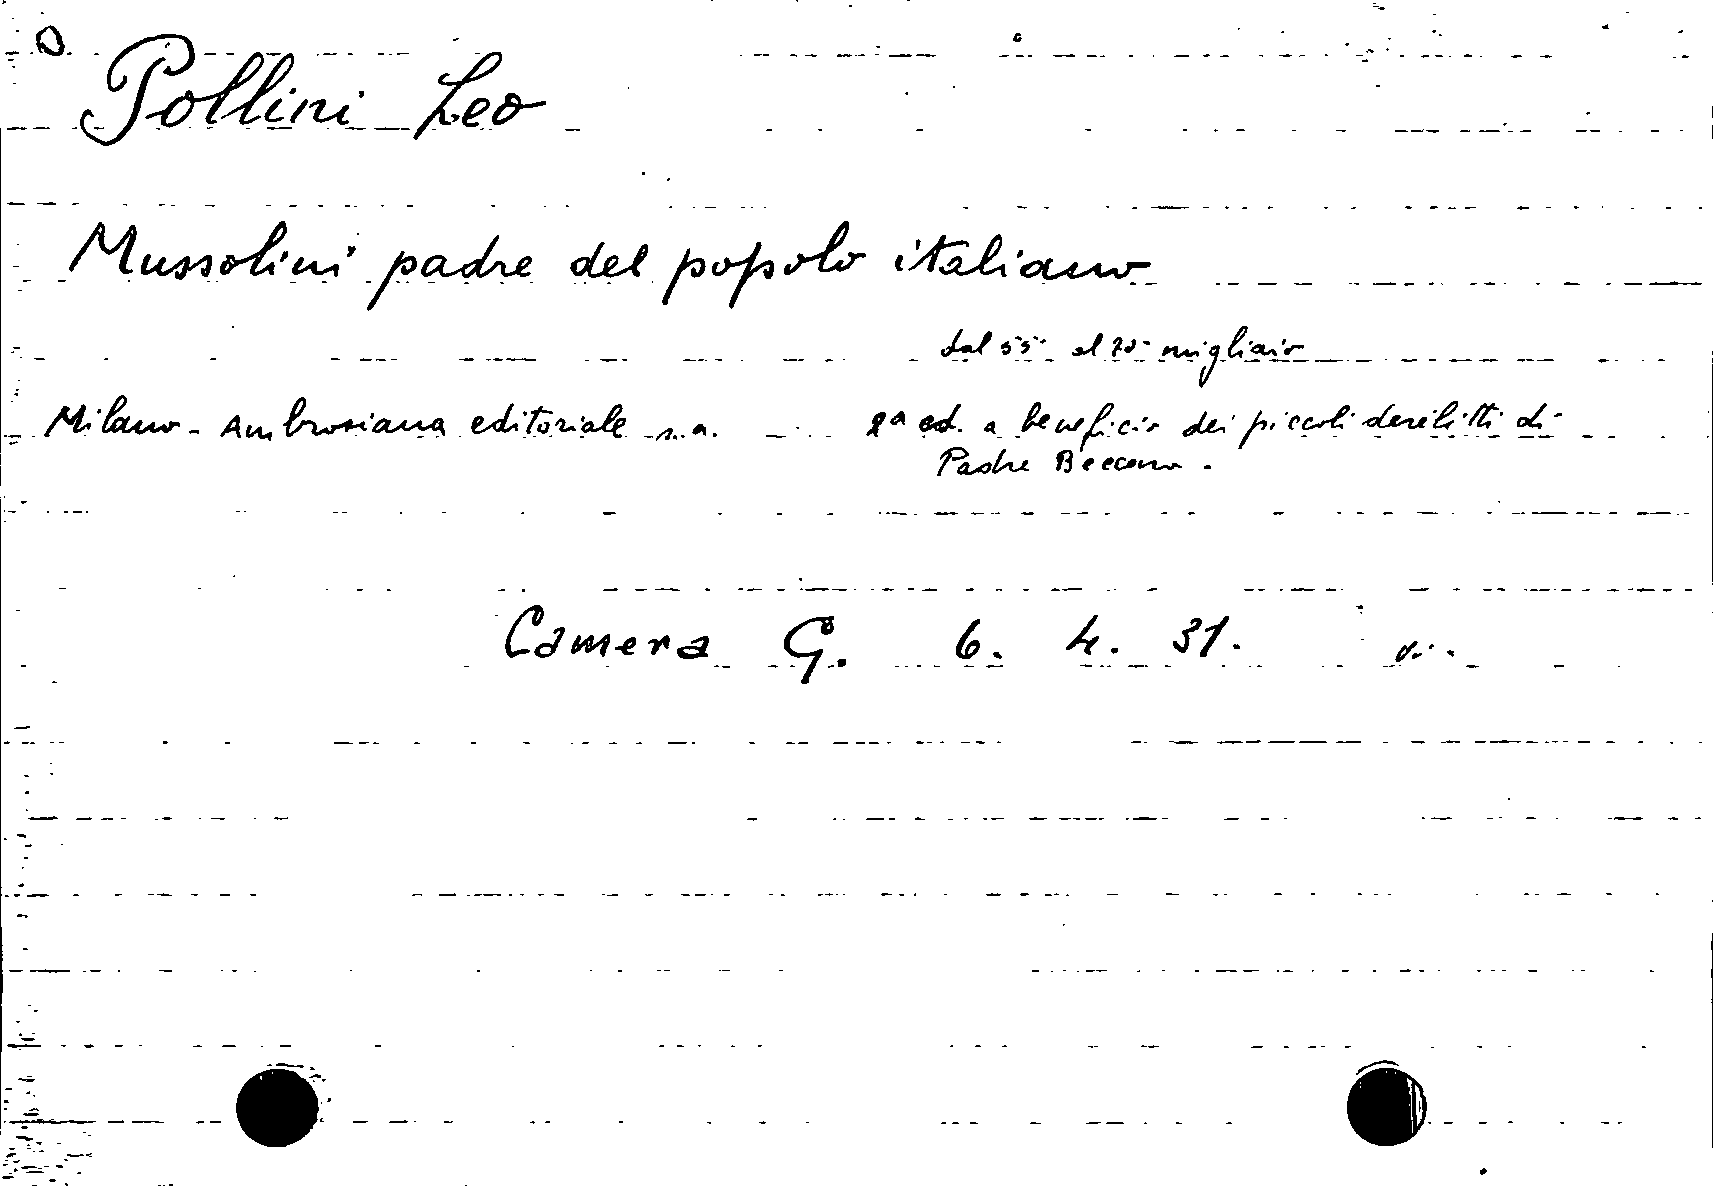 Pollini Leo
Mussolini padre del popolo italiano
dal 55° al 70° migliaio
Milano - Ambrosiana editoriale s.a.
2ª ed. a beneficio dei piccoli derelitti di
Padre Beccaro.
Camera G. 6. 4. 31.